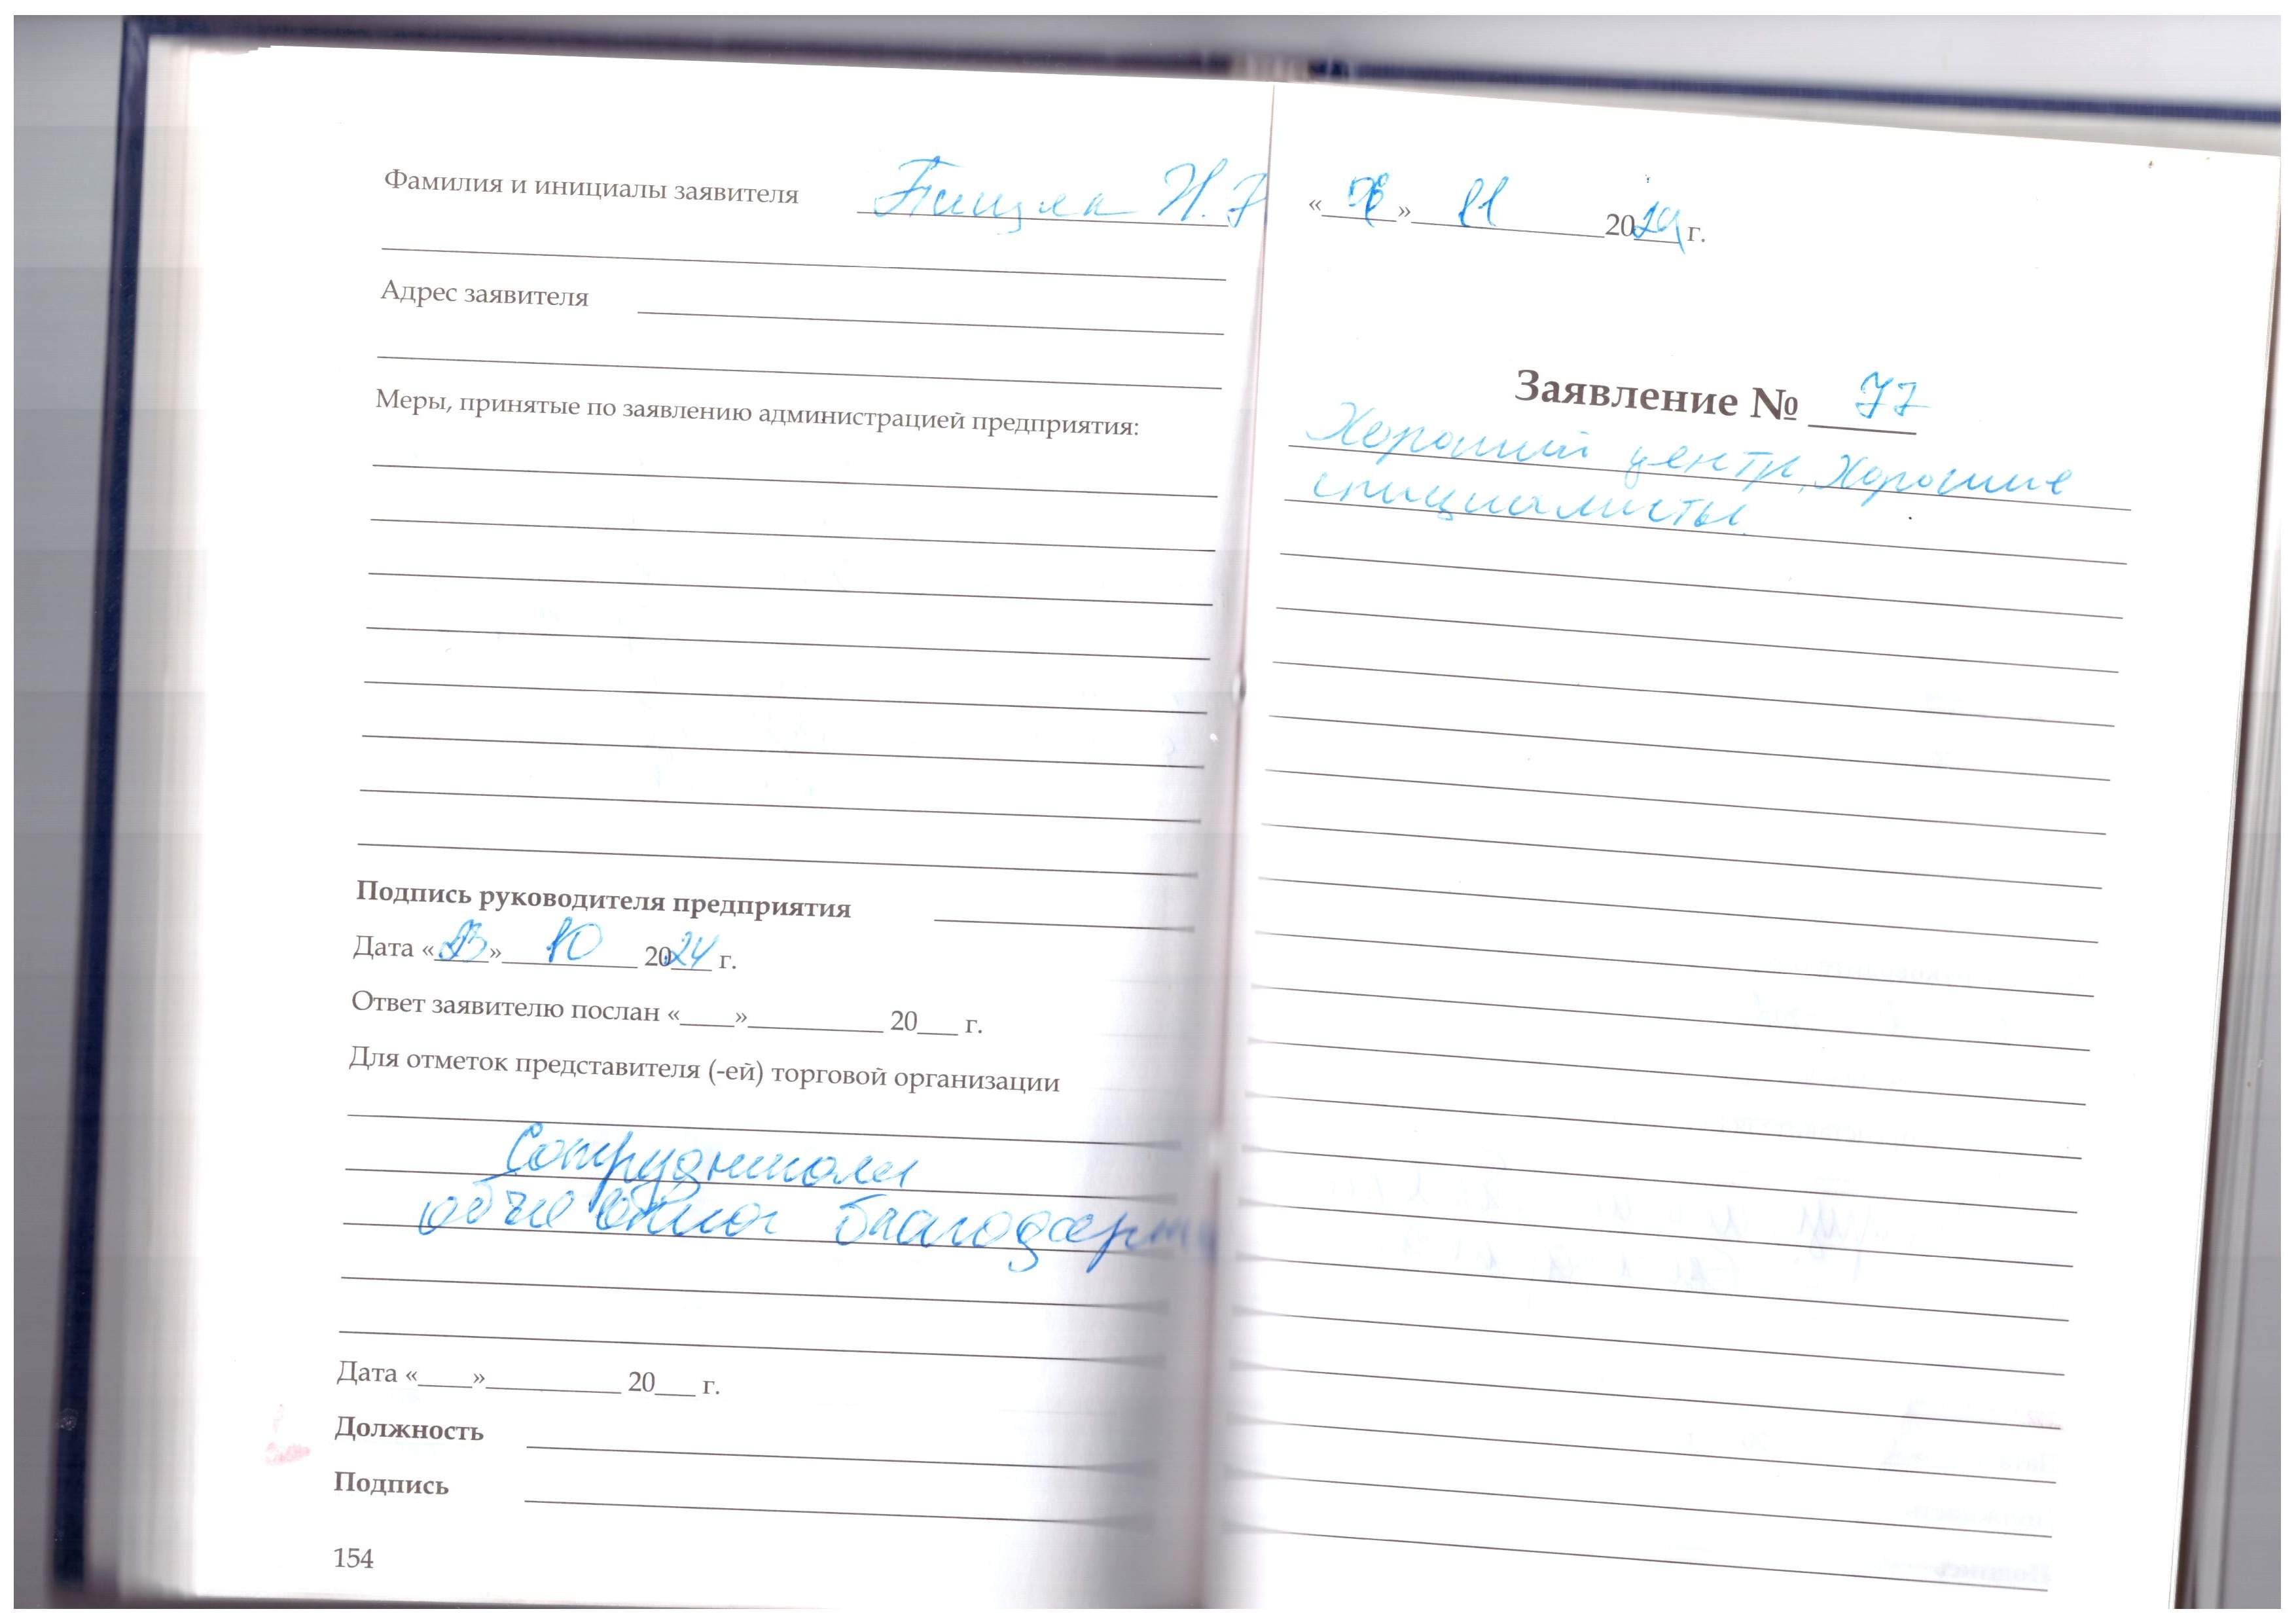 Фамилия и инициалы заявителя Н.
Адрес заявителя
Меры, принятые по заявлению администрацией предприятия:
Подпись руководителя предприятия
Дата «23» 10 2024 г.
Ответ заявителю послан «____»__________ 20___ г.
Для отметок представителя (-ей) торговой организации
Сотрудникам
объявлена
Дата «____»__________ 20___ г.
Должность
Подпись
154
«» 11 2024 г.
Заявление № 77
Хороший центр, Хорошие
специалисты